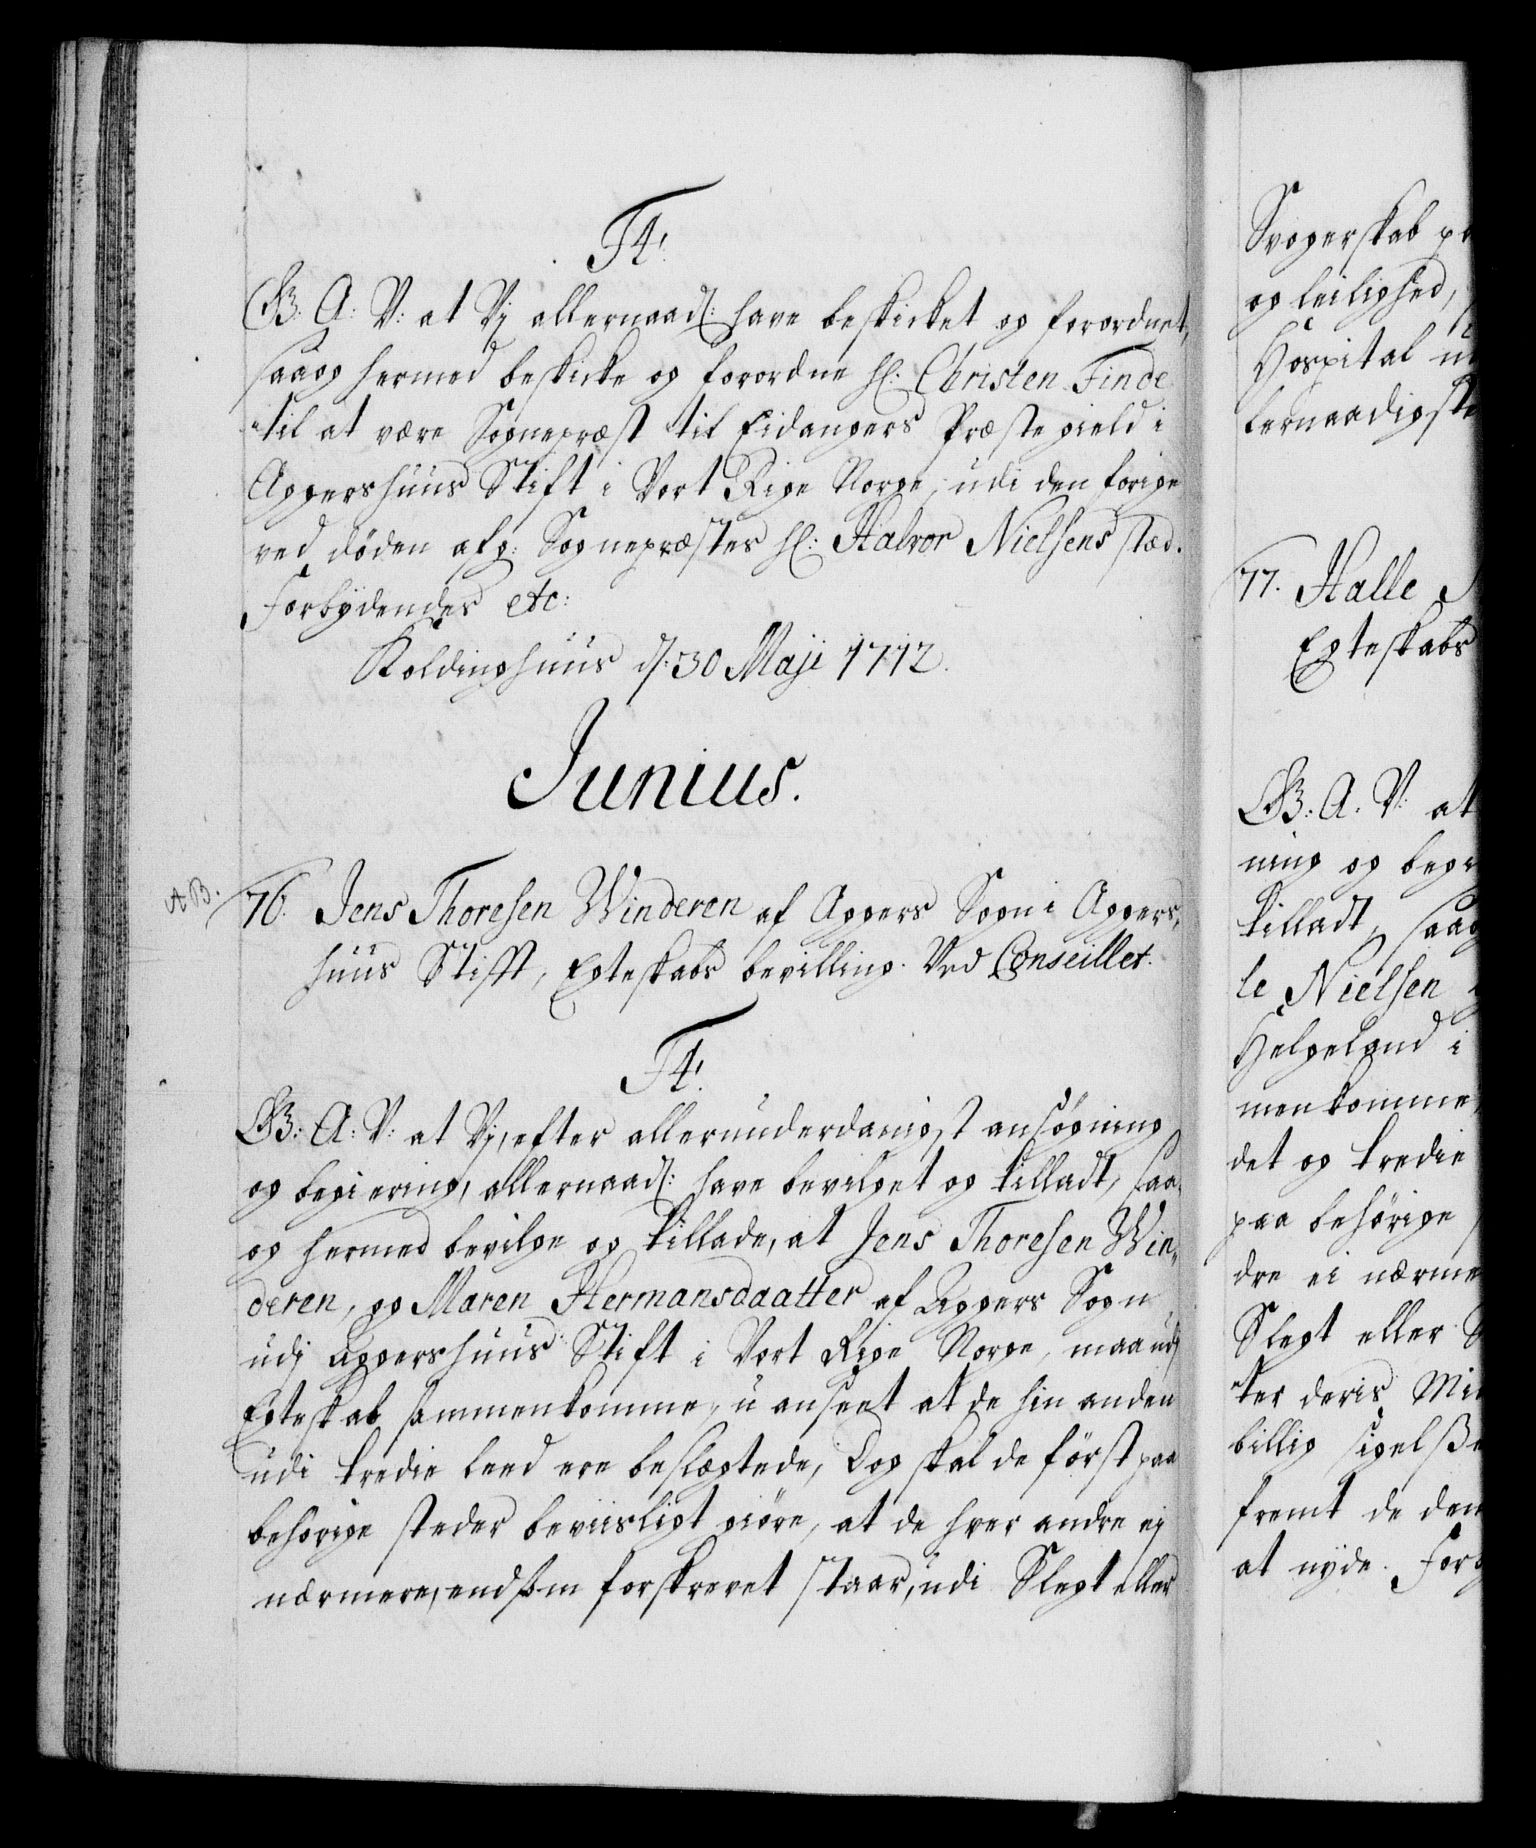 F4!
G.B. A: V: at Vj allernaad: have beskicket og forordnet,
saa og hermed beskicke og forordne H: Christen Finde
til at være Sognepræst til Eidangers Præstegield i
Aggershuus Stift i Vort Rige Norge, udi den forige
ved døden afg: Sognepræstes H: Halvor Nielsens stæd.
Forbydendes etc:
Koldinghuus d: 30 Maji 1712.
Junius.
A.B.
76. Jens Thoresen Winderen af Aggers Sogn i Aggers,
huus Stift, Egteskabs bevilling. Ved Conseillet.
F4!
G.B: A: V: at Vj, efter allerunderdanigst ansøgning
og begiering, allernaad: have bevilget og tilladt, saa,
og hermed bevilge og tillade, at Jens Thoresen Win,,
deren, og Maren Hermansdaatter af Aggers Sogn
udj Aggershuus Stift i Vort Rige Norge, maa udj
Egteskab sammenkomme, uanseet at de hin anden
udi tredie leed ere beslægtede, Dog skal de først paa
behørige steder beviisligt giøre, at de hver andre ej
nærmere, end som forskrevet staar, udi Slegt eller
Svogerskab
og leilighed,
Hospital
lernaadigste
77. Halle
Egteskabs
G.B: A: V: at
ning og beg
tilladt, saa og
le Nielsen
Helgeland i
menkomme,
det og tredie
paa behørige
dre ei nærme
Slegt eller
ter deris
billig
fremt de den
at nyde. Forb